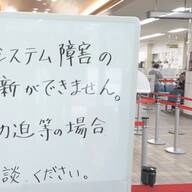 システム障害の
新ができません。
迫等の場合
談ください。